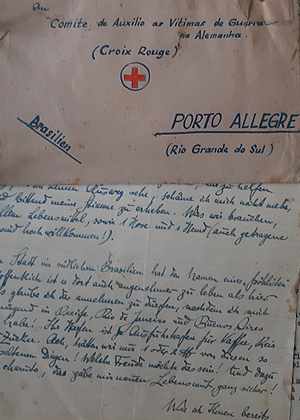 An
"Comite de Auxilio as Vitimas de Guerra
na Alemanha.
(Croix Rouge)
Brasilien
PORTO ALLEGRE
(Rio Grande do Sul)
keinen Ausweg sehe, schäme ich mich nicht mehr,
bittend meine Stimme zu erheben. Was wir brauchen,
Lebensmittel, sowie 1 Hose und 1 Hemd (auch getragene
sind hochwillkommen!).
Stadt im südlichen Brasilien hat den Namen eines „fröhlichen
Hoffentlich ist es dort auch angenehmer zu leben als hier
glaube ich das annehmen zu dürfen, nachdem ich mich
Jugend in Recife, Rio de Janeiro und Buenos Aires
habe! Ihr Hafen ist ja Ausfuhrhafen für Kaffee, Reis
Zucker. Ach, hätten wir nur 1 oder 2 von diesen so
seltenen Dingen! Welche Freude möchte das sein! Und dazu
das gäbe mir neuen Lebensmut, ganz sicher!
Wie ich Ihnen bereits